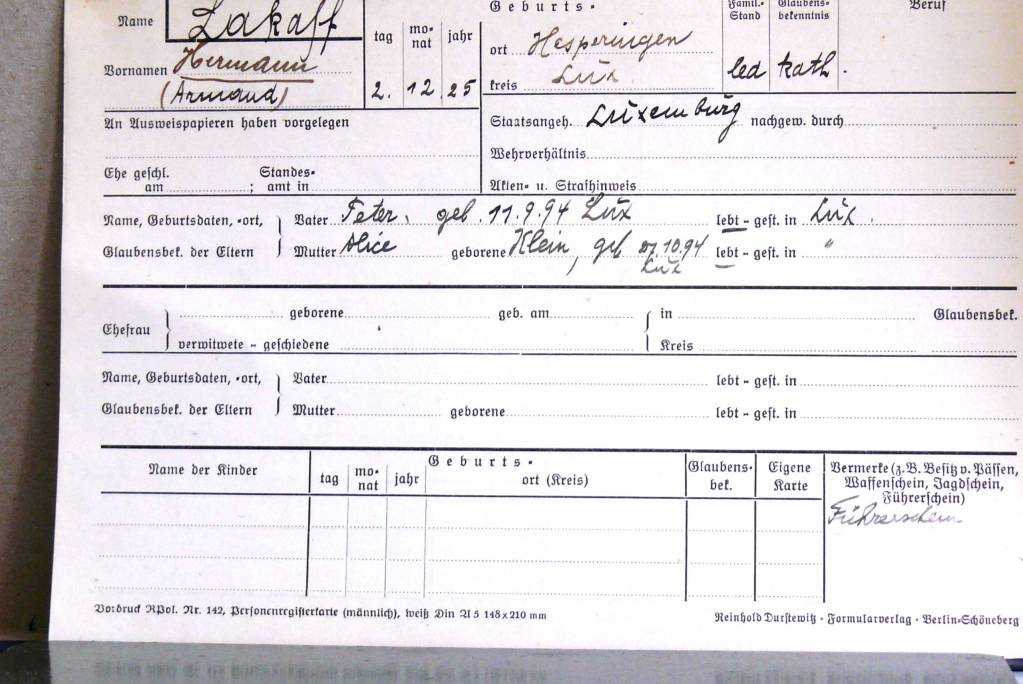 Name Zakaff
Vornamen Hermann
(Armand)
tag monat jahr
2. 12 25
Geburts-
ort Hesperingen
kreis Lux
Famil.-Stand Glaubens-bekenntnis Beruf
led kath.
An Ausweispapieren haben vorgelegen
Ehe geschl. am ; Standesamt in
Staatsangeh. Luxemburg nachgew. durch
Wehrverhältnis
Akten- u. Strafhinweis
Name, Geburtsdaten, -ort, Vater Peter, geb. 11.9.94 Lux lebt - gest. in Lux.
Glaubensbek. der Eltern Mutter Alice geborene Klein, geb 10.94 lebt - gest. in "
Lux
geborene geb. am in Glaubensbek.
Ehefrau
verwitwete - geschiedene Kreis
Name, Geburtsdaten, -ort, Vater lebt - gest. in
Glaubensbek. der Eltern Mutter geborene lebt - gest. in
Name der Kinder
Geburts-
tag monat jahr ort (Kreis)
Glaubens-bek.
Eigene Karte
Vermerke (z.B. Besitz v. Pässen,
Waffenschein, Jagdschein,
Führerschein)
Führerschein
Vordruck RPol. Nr. 142, Personenregisterkarte (männlich), weiß Din A 5 148x210 mm
Reinhold Durstewitz · Formularverlag · Berlin-Schöneberg